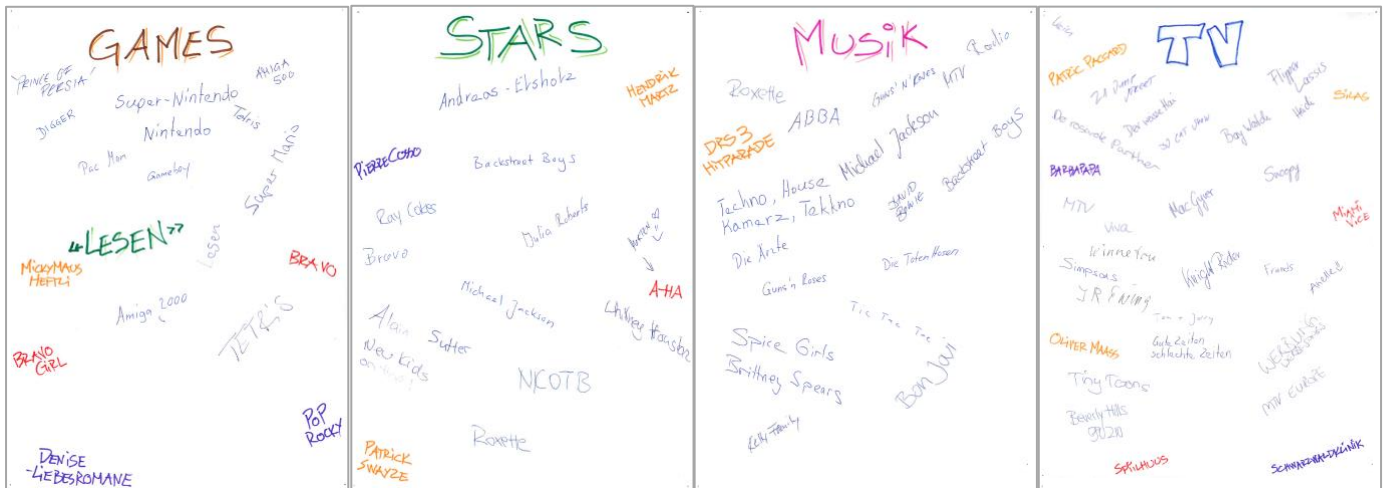 GAMES
"PRINCE OF
PERSIA"
AMIGA
500
Super-Nintendo
DIGGER
Tetris
Nintendo
Pac Man
Gameboy
Super Mario
"LESEN"
Lesen
MICKYMAUS
HEFTLI
BRAVO
Amiga 2000
TETRIS
BRAVO
GIRL
POP
ROCKY
DENISE
-LIEBESROMANE
STARS
Andreas-Elsholz
HENDRIK
MARTZ
PIERRE COSSO
Backstreet Boys
Ray Cokes
Julia Roberts
Bravo
MORTEN
A-HA
Michael Jackson
Whitney Houston
Alain Sutter
New Kids
NKOTB
Roxette
PATRICK
SWAYZE
MUSIK
Radio
MTV
Guns'N'Roses
Roxette
ABBA
DRS 3
HITPARADE
Michael Jackson
Backstreet Boys
Techno, House
Kamerz, Tekkno
DAVID
BOWIE
Die Ärzte
Die Toten Hosen
Guns'n Roses
Tic Tac Toe
Spice Girls
Brittney Spears
Bon Jovi
Kelly Family
TV
PATRIC PACCARD
21 Jump
Street
Flipper
Lassie
SILAS
Der rosarote
Panther
Bay Watch
Heidi
BARBAPAPA
Snoopy
MTV
MacGyver
MIAMI
VICE
Viva
Winnetou
Simpsons
Knight Rider
Friends
JR Ewing
Tom + Jerry
OLIVER MAASS
Gute Zeiten
schlechte Zeiten
WERBUNG
Tiny Toons
MTV EUROPE
Beverly Hills
90210
SPIILHUUS
SCHWARZWALDKLINIK